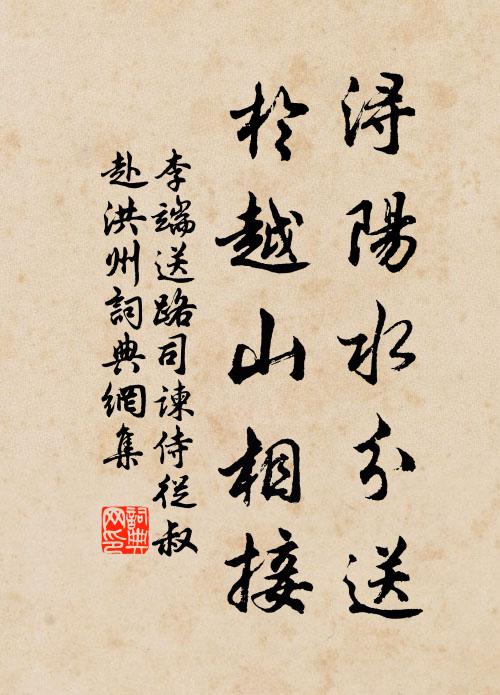 浔陽水分送
於越山相接
李端送路司諫侍從叔
赴洪州詞典網集
詞典
网印